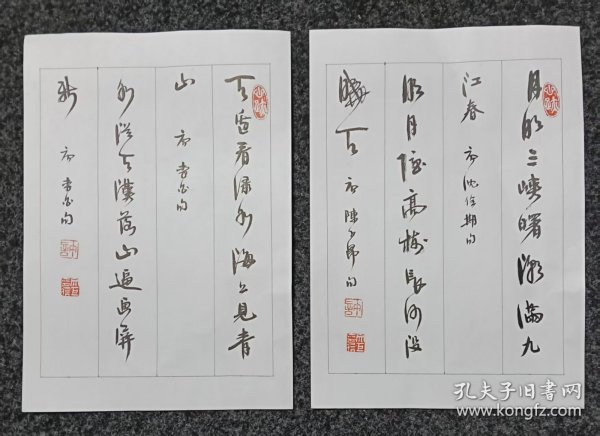 月明三峽曙潮滿九
江春 唐沈佺期句
明月隱高樹長河沒
曉天 唐陳子昂句
天邊看渌水海上見青
山 唐李白句
水從天漢落山逼画屏
新 唐李白句
孔夫子旧书网
www.kongfz.com